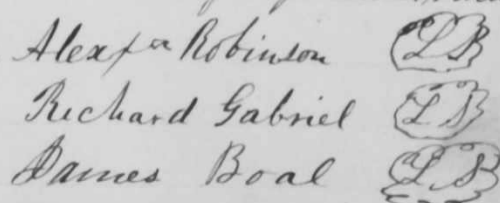 Alexr Robinson LS
Richard Gabriel LS
James Boal LS